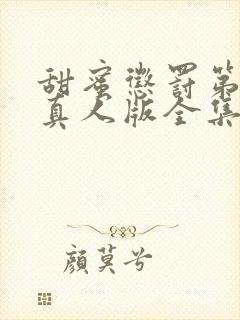 甜蜜懲罰第
真人版全集
顏莫兮